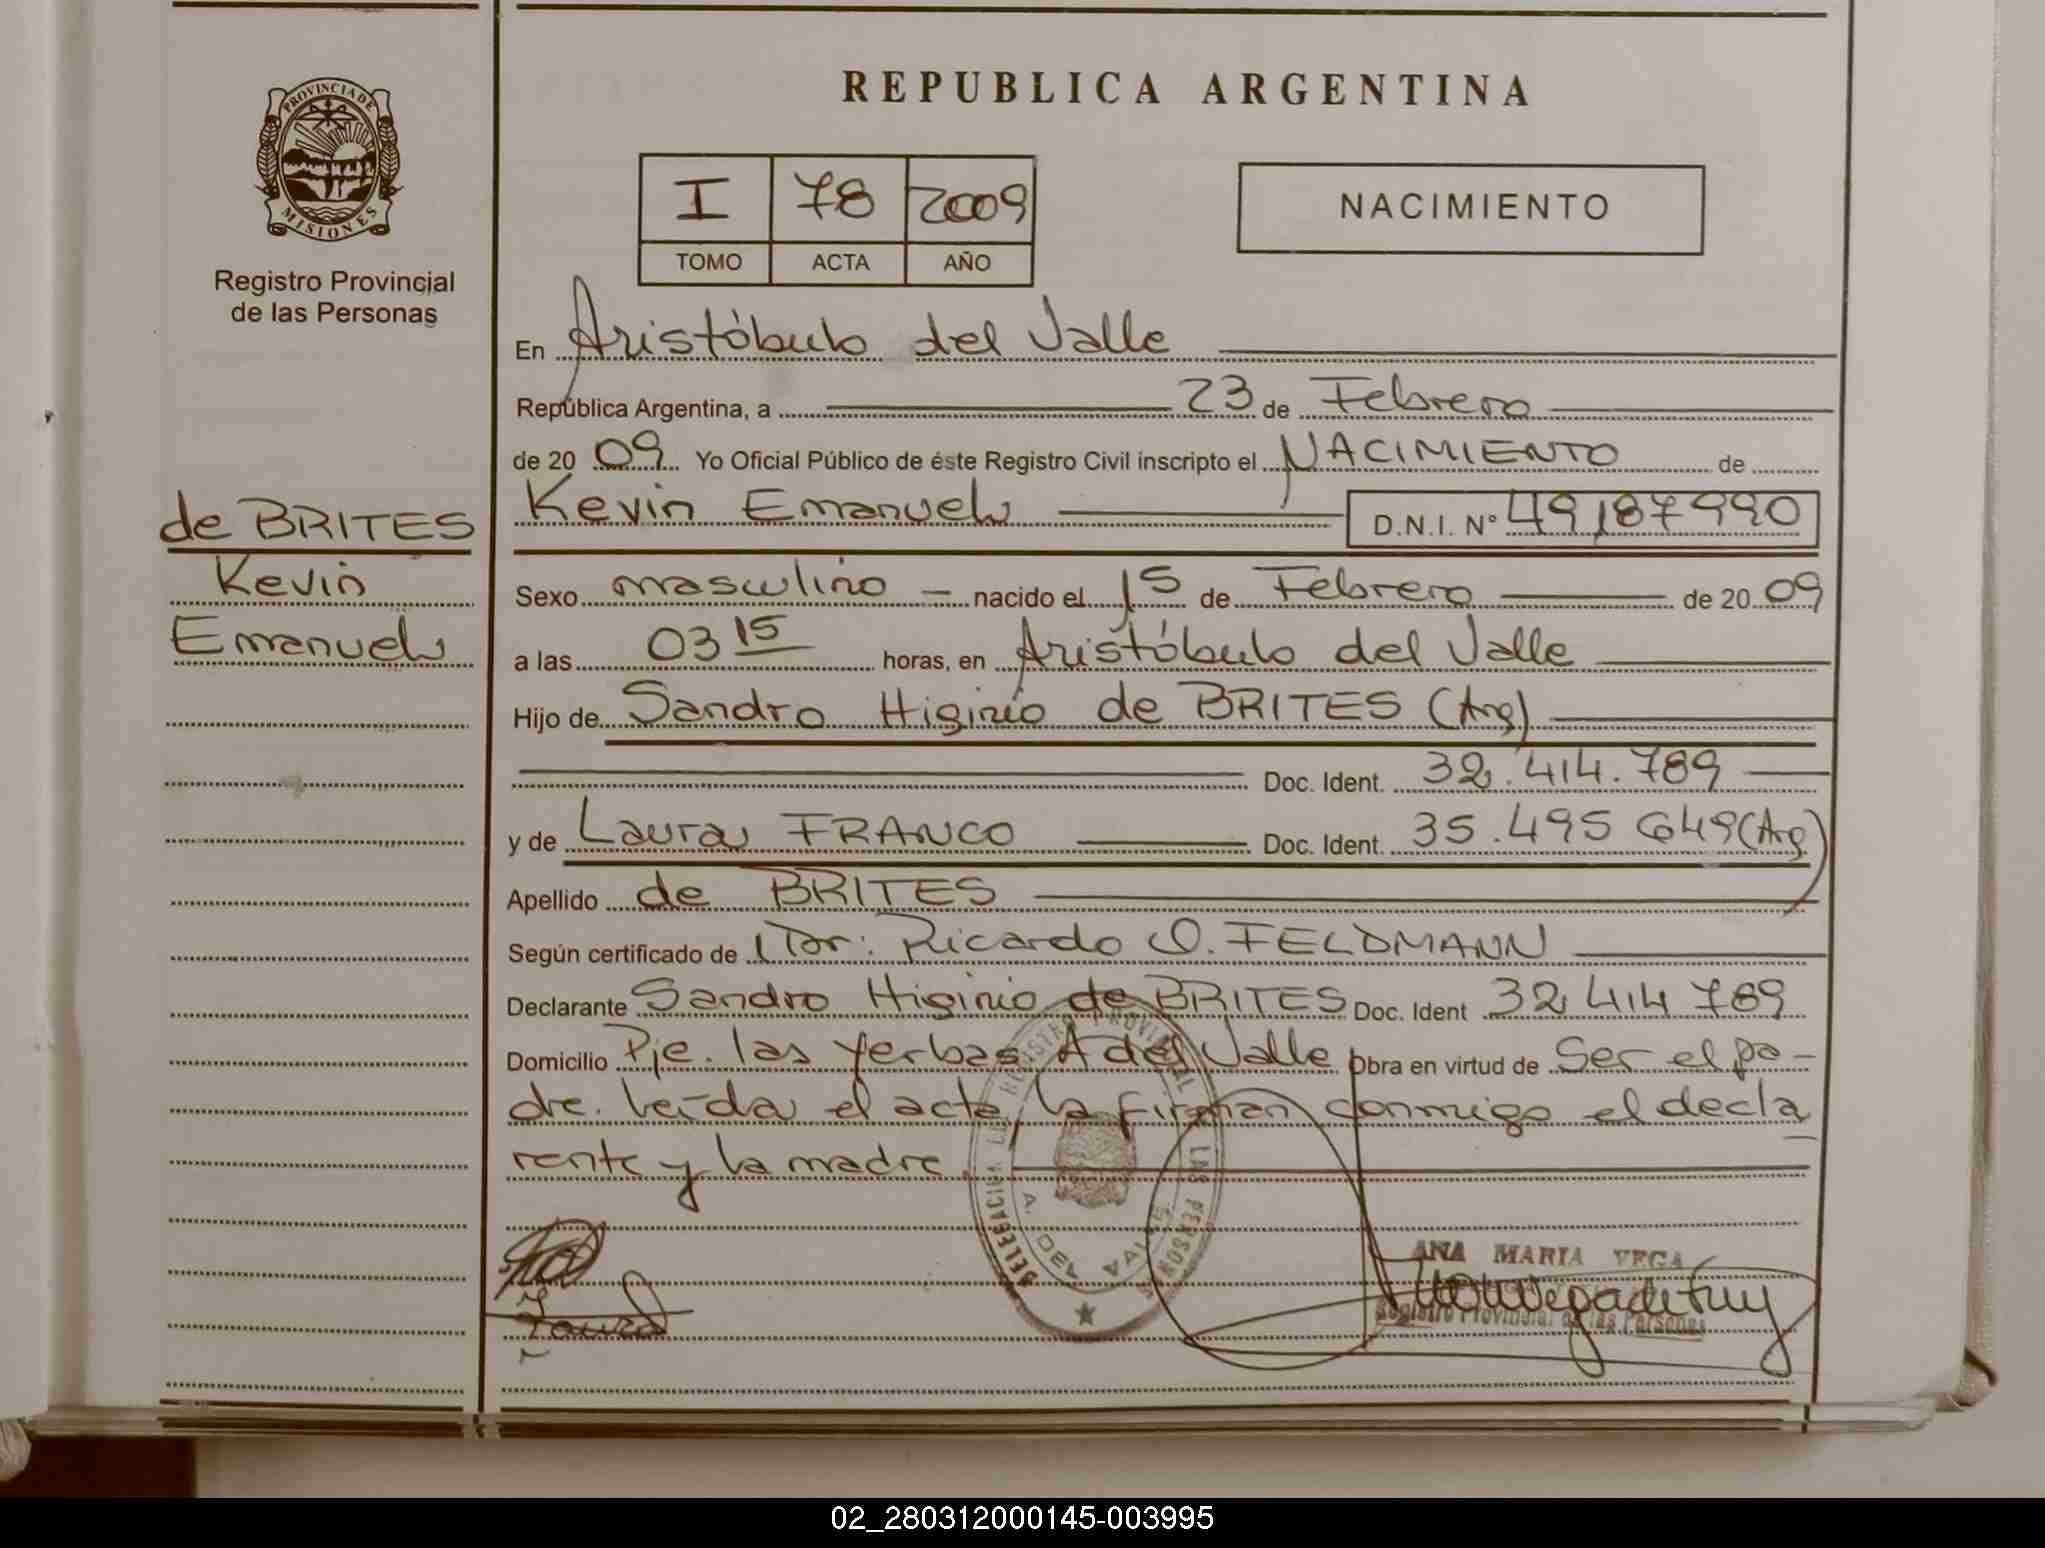 PROVINCIA DE
MISIONES
Registro Provincial
de las Personas
de BRITES
Kevin
Emanuel
REPUBLICA ARGENTINA
I 78 2009
TOMO ACTA AÑO
NACIMIENTO
En Aristóbulo del Valle
República Argentina, a 23 de Febrero
de 20 09 Yo Oficial Público de éste Registro Civil inscripto el NACIMIENTO de
Kevin Emanuel D.N.I. Nº 49187990
Sexo masculino nacido el 15 de Febrero de 20 09
a las 03 15 horas, en Aristóbulo del Valle
Hijo de Sandro Higinio de BRITES (Arg)
Doc. Ident. 32.414.789
y de Laura FRANCO Doc. Ident. 35.495 649 (Arg)
Apellido de BRITES
Según certificado de Dr: Ricardo O. FELDMANN
Declarante Sandro Higinio de BRITES Doc. Ident 32 414 789
Domicilio Pje. las Yerbas A del Valle Obra en virtud de Ser el pa-
dre. leída el acta la firman conmigo el decla
rante y la madre.
DELEGACION REGISTRO PROVINCIAL DE LAS PERSONAS
A. DEL VALLE
Laura
ANA MARIA VEGA
Registro Provincial de las Personas
02_280312000145-003995